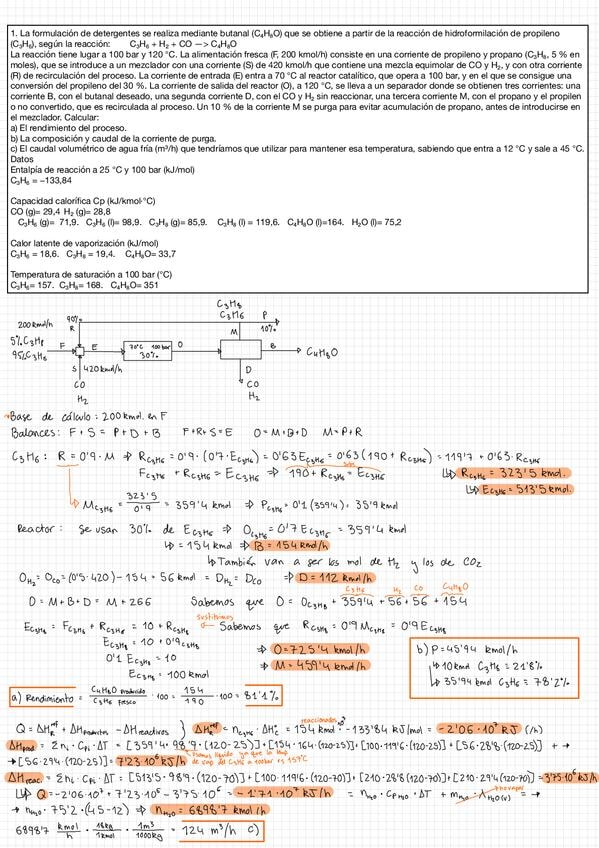 1. La formulación de detergentes se realiza mediante butanal (C₄H₈O) que se obtiene a partir de la reacción de hidroformilación de propileno
(C₃H₆), según la reacción: C₃H₆ + H₂ + CO —> C₄H₈O
La reacción tiene lugar a 100 bar y 120 °C. La alimentación fresca (F, 200 kmol/h) consiste en una corriente de propileno y propano (C₃H₈, 5 % en
moles), que se introduce a un mezclador con una corriente (S) de 420 kmol/h que contiene una mezcla equimolar de CO y H₂, y con otra corriente
(R) de recirculación del proceso. La corriente de entrada (E) entra a 70 °C al reactor catalítico, que opera a 100 bar, y en el que se consigue una
conversión del propileno del 30 %. La corriente de salida del reactor (O), a 120 °C, se lleva a un separador donde se obtienen tres corrientes: una
corriente B, con el butanal deseado, una segunda corriente D, con el CO y H₂ sin reaccionar, una tercera corriente M, con el propano y el propilen
o no convertido, que es recirculada al proceso. Un 10 % de la corriente M se purga para evitar acumulación de propano, antes de introducirse en
el mezclador. Calcular:
a) El rendimiento del proceso.
b) La composición y caudal de la corriente de purga.
c) El caudal volumétrico de agua fría (m³/h) que tendríamos que utilizar para mantener esa temperatura, sabiendo que entra a 12 °C y sale a 45 °C.
Datos
Entalpía de reacción a 25 °C y 100 bar (kJ/mol)
C₃H₆ = −133,84
Capacidad calorífica Cp (kJ/kmol·°C)
CO (g)= 29,4 H₂ (g)= 28,8
C₃H₆ (g)= 71,9. C₃H₆ (l)= 98,9. C₃H₈ (g)= 85,9. C₃H₈ (l) = 119,6. C₄H₈O (l)=164. H₂O (l)= 75,2
Calor latente de vaporización (kJ/mol)
C₃H₆ = 18,6. C₃H₈ = 19,4. C₄H₈O= 33,7
Temperatura de saturación a 100 bar (°C)
C₃H₆= 157. C₃H₈= 168. C₄H₈O= 351
C₃H₈
C₃H₆ P
90%
200 kmol/h R M 10%
5% C₃H₈ F E 70°C 100 bar O B C₄H₈O
95% C₃H₆ 30%
S 420 kmol/h D
CO CO
H₂ H₂
Base de cálculo: 200 kmol en F
Balances: F + S = P + D + B F + R + S = E O = M + B + D M = P + R
C₃H₆: R = 0'9 · M ⇒ R C₃H₆ = 0'9 · (0'7 · E C₃H₆) = 0'63 E C₃H₆ = 0'63 (190 + R C₃H₆) = 119'7 + 0'63 · R C₃H₆
F C₃H₆ + R C₃H₆ = E C₃H₆ ⇒ 190 + R C₃H₆ = E C₃H₆ ↳ R C₃H₆ = 323'5 kmol.
↳ E C₃H₆ = 513'5 kmol.
M C₃H₆ = 323'5 / 0'9 = 359'4 kmol ⇒ P C₃H₆ = 0'1 (359'4) = 35'9 kmol
Reactor: se usan 30% de E C₃H₆ ⇒ O C₃H₆ = 0'7 E C₃H₆ = 359'4 kmol
↳ = 154 kmol ⇒ B = 154 kmol/h
↳ También van a ser los mol de H₂ y los de CO₂
O H₂ = O CO = (0'5 · 420) - 154 = 56 kmol = D H₂ = D CO ⇒ D = 112 kmol/h
C₃H₆ H₂ CO C₄H₈O
O = M + B + D = M + 266 Sabemos que O = O C₃H₈ + 359'4 + 56 + 56 + 154
sustituimos
E C₃H₈ = F C₃H₈ + R C₃H₈ = 10 + R C₃H₈ Sabemos que R C₃H₈ = 0'9 M C₃H₈ = 0'9 E C₃H₈
E C₃H₈ = 10 + 0'9 C₃H₈
0'1 E C₃H₈ = 10
E C₃H₈ = 100 kmol
⇒ O = 725'4 kmol/h
⇒ M = 459'4 kmol/h
b) P = 45'94 kmol/h
↳ 10 kmol C₃H₈ = 21'8%
↳ 35'94 kmol C₃H₆ = 78'2%
a) Rendimiento = C₄H₈O producido / C₃H₆ fresco · 100 = 154 / 190 · 100 = 81'1%
reaccionados
Q = ΔH R ref + ΔH productos - ΔH reactivos } ΔH R ref = n C₃H₆ · ΔH r° = 154 kmol · 10³ · -133'84 kJ/mol = -2'06·10⁷ kJ (/h)
ΔH prod = Σ ni · Cpi · ΔT = [359'4 · 98'9 · (120-25)] + [154 · 164 (120-25)] + [100 · 119'6 · (120-25)] + [56 · 28'8 · (120-25)] + →
→ [56 · 29'4 (120-25)] = 7'23·10⁶ kJ/h
ΔH reac = Σ ni · Cpi · ΔT = [513'5 · 98'9 · (120-70)] + [100 · 119'6 · (120-70)] + [210 · 28'8 (120-70)] + [210 · 29'4 (120-70)] = 3'75·10⁶ kJ/h
↳ Q = -2'06·10⁷ + 7'23·10⁶ - 3'75·10⁶ = -1'71·10⁷ kJ/h = n H₂O · Cp H₂O · ΔT + m H₂O · λ H₂O (v) = →
→ n H₂O · 75'2 · (45-12) ⇒ n H₂O = 6898'7 kmol/h
6898'7 kmol/h · 18 kg / 1 kmol · 1 m³ / 1000 kg = 124 m³/h c)